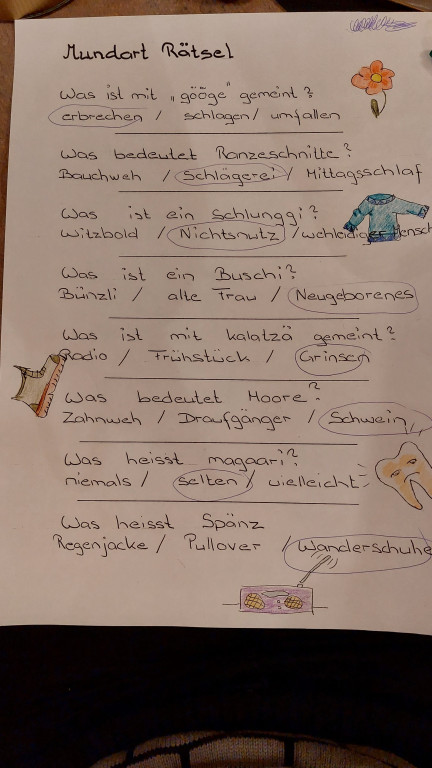 Mundart Rätsel
Was ist mit „gööge" gemeint?
erbrechen / schlagen / umfallen
Was bedeutet Ranzeschnitte?
Bauchweh / Schlägerei / Mittagsschlaf
Was ist ein Schlunggi?
Witzbold / Nichtsnutz / wehleidiger Mensch
Was ist ein Buschi?
Bünzli / alte Frau / Neugeborenes
Was ist mit kalatzä gemeint?
Radio / Frühstück / Grinsen
Was bedeutet Moore?
Zahnweh / Draufgänger / Schwein
Was heisst magaari?
niemals / selten / vielleicht
Was heisst Spänz
Regenjacke / Pullover / Wanderschuhe